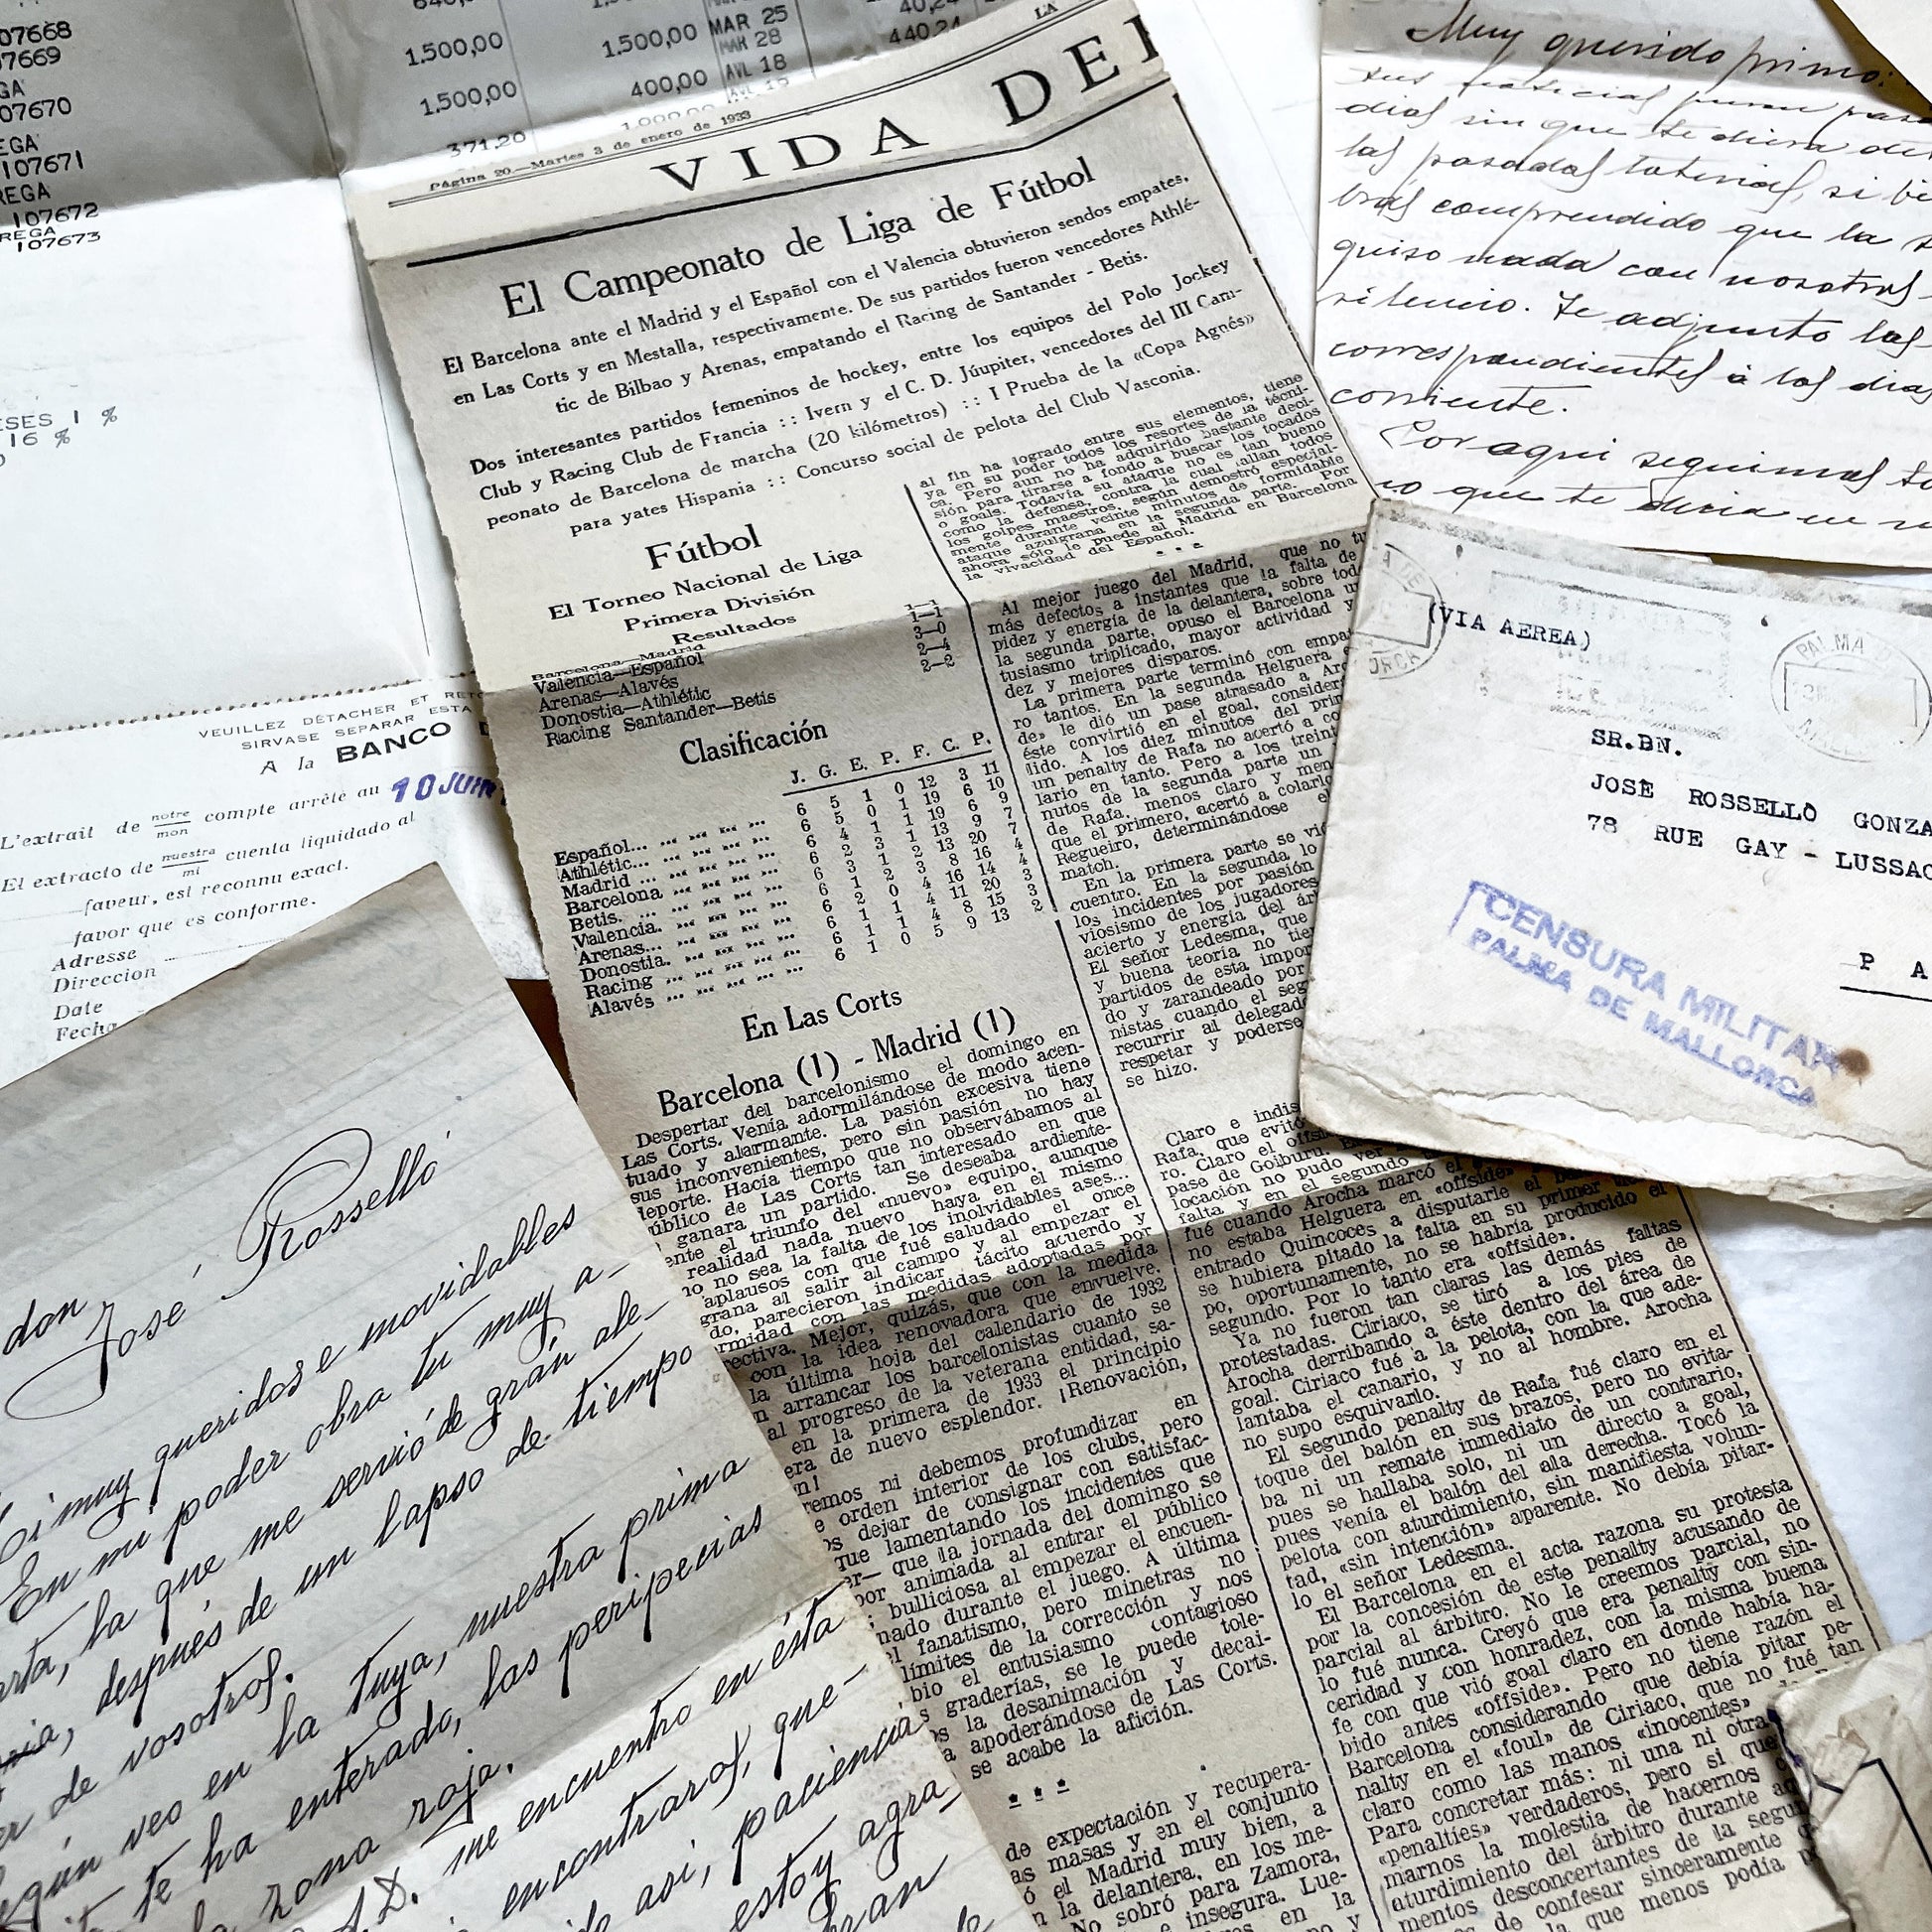 07668
07669
07670
107671
107672
107673
1.500,00
1.500,00
371.20
1.500,00
400,00
MAR 25
MAR 28
AVL 18
40,24
440,24
ESES 1 %
16 %
VEUILLEZ DÉTACHER ET RETO
SIRVASE SEPARAR ESTA
A la BANCO D
L'extrait de notre/mon compte arrêté au 10 JUIN
El extracto de nuestra/mi cuenta liquidado al
faveur, est reconnu exact.
favor que es conforme.
Adresse
Direccion
Date
Fecha
Página 20.—Martes 3 de enero de 1933
LA
VIDA DEP
El Campeonato de Liga de Fútbol
El Barcelona ante el Madrid y el Español con el Valencia obtuvieron sendos empates,
en Las Corts y en Mestalla, respectivamente. De sus partidos fueron vencedores Athlé-
tic de Bilbao y Arenas, empatando el Racing de Santander - Betis.
Dos interesantes partidos femeninos de hockey, entre los equipos del Polo Jockey
Club y Racing Club de Francia :: Ivern y el C. D. Júupiter, vencedores del III Cam-
peonato de Barcelona de marcha (20 kilómetros) :: I Prueba de la «Copa Agnés»
para yates Hispania :: Concurso social de pelota del Club Vasconia.
Fútbol
El Torneo Nacional de Liga
Primera División
Resultados
Barcelona—Madrid 1—1
Valencia—Español 1—1
Arenas—Alavés 3—0
Donostia—Athlétic 2—4
Racing Santander—Betis 2—2
Clasificación
J. G. E. P. F. C. P.
Español... 6 5 1 0 12 3 11
Athlétic... 6 5 0 1 19 6 10
Madrid ... 6 4 1 1 19 6 9
Barcelona 6 2 3 1 13 9 7
Betis. ... 6 3 1 2 13 20 7
Valencia. 6 1 2 3 8 16 4
Arenas... 6 2 0 4 16 14 4
Donostia. 6 1 1 4 11 20 3
Racing ... 6 1 1 4 8 15 3
Alavés ... 6 1 0 5 9 13 2
En Las Corts
Barcelona (1) - Madrid (1)
Despertar del barcelonismo el domingo en
Las Corts. Venía adormilándose de modo acen-
tuado y alarmante. La pasión excesiva tiene
sus inconvenientes, pero sin pasión no hay
deporte. Hacía tiempo que no observábamos al
público de Las Corts tan interesado en que
ganara un partido. Se deseaba ardiente-
ente el triunfo del «nuevo» equipo, aunque
realidad nada nuevo haya en el mismo
no sea la falta de los inolvidables ases...
aplausos con que fué saludado el once
grana al salir al campo y al empezar el
do, parecieron indicar tácito acuerdo y
rmidad con las medidas adoptadas por
rectiva. Mejor, quizás, que con la medida
con la idea renovadora que envuelve.
la última hoja del calendario de 1932
n arrancar los barcelonistas cuanto se
al progreso de la veterana entidad, sa-
en la primera de 1933 el principio
era de nuevo esplendor. ¡Renovación,
n!
remos ni debemos profundizar en
e orden interior de los clubs, pero
os dejar de consignar con satisfac-
que lamentando los incidentes que
er— que la jornada del domingo se
por animada al entrar el público
; bulliciosa al empezar el encuen-
nado durante el juego. A última
l fanatismo, pero minetras no
límites de la corrección y nos
bio el entusiasmo contagioso
s graderías, se le puede tole-
os la desanimación y decai-
a apoderándose de Las Corts.
se acabe la afición.
* * *
de expectación y recupera-
as masas y en el conjunto
ó el Madrid muy bien, a
n la delantera, en los me-
No sobró para Zamora,
e insegura. Lue-
al fin ha logrado entre sus elementos, tiene
ya en su poder todos los resortes de la técni-
ca. Pero aun no ha adquirido bastante deci-
sión para tirarse a fondo a buscar los tocados
o goals. Todavía su ataque no es tan bueno
como la defensa, contra la cual allan todos
los golpes maestros, según demostró especial-
mente durante veinte minutos de formidable
ataque azulgrana en la segunda parte. Por
ahora sólo le puede al Madrid en Barcelona
la vivacidad del Español.
* * *
Al mejor juego del Madrid, que no tu
más defectos a instantes que la falta de
pidez y energía de la delantera, sobre tod
la segunda parte, opuso el Barcelona u
tusiasmo triplicado, mayor actividad y
dez y mejores disparos.
La primera parte terminó con empa
ro tantos. En la segunda Helguera
de» le dió un pase atrasado a Aro
éste convirtió en el goal, consider
lido. A los diez minutos del prim
un penalty de Rafa no acertó a co
lario en tanto. Pero a los treint
nutos de la segunda parte un
de Rafa, menos claro y men
que el primero, acertó a colarlo
Regueiro, determinándose el
match.
En la primera parte se vió
cuentro. En la segunda, lo
los incidentes por pasión
viosismo de los jugadores
acierto y energía del ár
El señor Ledesma, que
y buena teoría no tien
partidos de esta impor
do y zarandeado por
nistas cuando el seg
recurrir al delegado
respetar y poderse
se hizo.
Claro e indis
Rafa, que evitó
ro. Claro el offsi
pase de Goiburu.
locación no pudo ver
falta y en el segundo
fué cuando Arocha marcó el
no estaba Helguera en «offside»
entrado Quincoces a disputarle el
se hubiera pitado la falta en su primer
po, oportunamente, no se habría producido el
segundo. Por lo tanto era «offside».
Ya no fueron tan claras las demás faltas
protestadas. Ciriaco, se tiró a los pies de
Arocha derribando a éste dentro del área de
goal. Ciriaco fué a la pelota, con la que ade-
lantaba el canario, y no al hombre. Arocha
no supo esquivarlo.
El segundo penalty de Rafa fué claro en el
toque del balón en sus brazos, pero no evita-
ba ni un remate inmediato de un contrario,
pues se hallaba solo, ni un directo a goal,
pues venía el balón del ala derecha. Tocó la
pelota con aturdimiento, sin manifiesta volun-
tad, «sin intención» aparente. No debía pitar-
lo el señor Ledesma.
El Barcelona en el acta razona su protesta
por la concesión de este penalty acusando de
parcial al árbitro. No le creemos parcial, no
lo fué nunca. Creyó que era penalty con sin-
ceridad y con honradez, con la misma buena
fe con que vió goal claro en donde había ha-
bido antes «offside». Pero no tiene razón el
Barcelona considerando que debía pitar pe-
nalty en el «foul» de Ciriaco, que no fué tan
claro como las manos «inocentes»
Para concretar más: ni una ni otra
«penalties» verdaderos, pero si que
marnos la molestia de hacernos
aturdimiento del árbitro durante
mentos desconcertantes de la segu
de confesar sinceramente
la que menos podía
Muy querido primo:
sus noticias
dias sin que te diera
las pasadas
bras comprendido que la
quiso nada con nosotros
silencio. Te adjunto las
correspondientes á los dias
corriente.
Por aqui seguimos
no que te diria en
(VIA AEREA)
PALMA D
SR.BN.
JOSÈ ROSSELLÒ GONZA
78 RUE GAY - LUSSAC
P A
CENSURA MILITAR
PALMA DE MALLORCA
don José Rosselló
Mi muy queridos e inovidables
En mi poder obra tu muy a-
arta, la que me servió de grán ale-
ria, después de un lapso de tiempo
er de vosotros.
Según veo en la tuya, nuestra prima
te ha enterado, las peripecias
la zona roja.
A.D. me encuentro en ésta
encontraros, que-
do asi, paciencia
estoy agra-